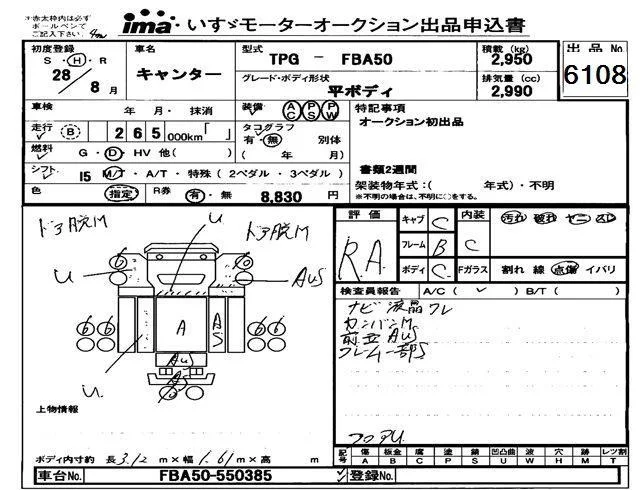 ※赤太枠内は必ず
ボールペンで
ご記入下さい。
ima いすゞモーターオークション出品申込書
初度登録
S・H・R
28
8月
車名
キャンター
型式
TPG － FBA50
グレード・ボディ形状
平ボディ
積載 (kg)
2,950
排気量 (cc)
2,990
出品No
6108
車検 年 月・ 抹消
装備 AC PS PW
特記事項
オークション初出品
走行 B 265 000km「 」
タコグラフ
有・無 別体
( 年 月)
燃料 G・D・HV 他( )
書類2週間
シフト I5 M/T・A/T・特殊(2ペダル・3ペダル)
架装物年式：( 年式)・不明
※不明の場合は、不明に○をする。
色 指定 R券 有・無 8,830 円
ドア脱M
U
ドア脱M
6
6
U
AUS
6 6
A
AUS
6 6
U
AUS
AUS
上物情報
ボディ内寸約 長3.12 m×幅1.61m×高 m
評価
R.A.
キャブ C
フレーム B
ボディ C
内装 C
汚れ 破れ ヤニ スレ
Fガラス 割れ 線 点傷 イバリ
検査員報告 A/C( ) B/T( )
ナビ液晶ワレ
カンバンM
前立AUS
フレーム一部S
フロアU
記号
傷 板金 腐 塗 錆 凹凸曲 波 穴 跡 レツ割
A B C P S U W H M T
車台No. FBA50-550385
登録No.